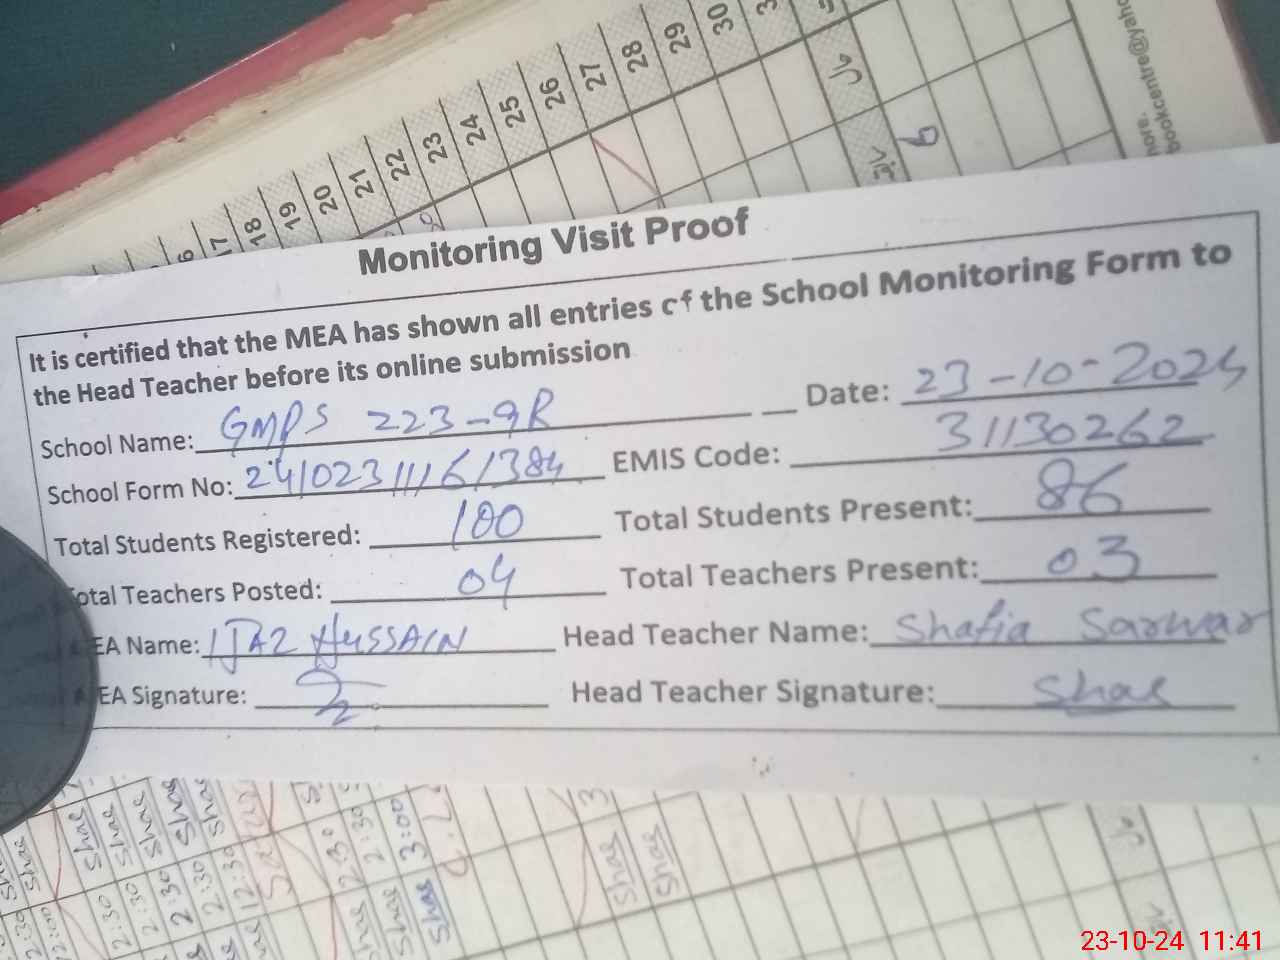 16
17
18
19
20
21
22
23
24
25
26
27
28
29
30
bookcentre@yaho
Monitoring Visit Proof
It is certified that the MEA has shown all entries of the School Monitoring Form to
the Head Teacher before its online submission
School Name: GMPS 223-9R Date: 23-10-2024
School Form No: 241023111161384 EMIS Code: 31130262
Total Students Registered: 100 Total Students Present: 86
Total Teachers Posted: 04 Total Teachers Present: 03
MEA Name: IJAZ HUSSAIN Head Teacher Name: Shafia Sarwar
MEA Signature: Head Teacher Signature: Shae
Shae Shae Shae Shae Shae
2:30 2:30 2:30 2:30 12:30 2:30 2:30 3:00
Shae Shae Shae
Shae Shae
23-10-24 11:41